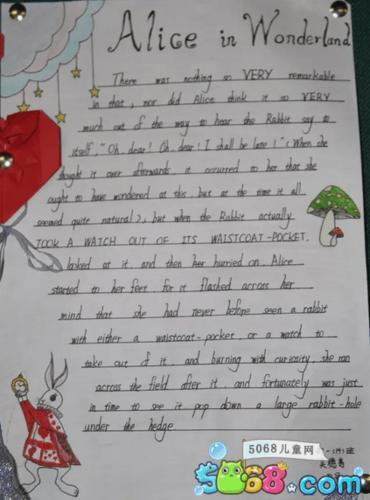 Alice in Wonderland
There was nothing so VERY remarkable
in that, nor did Alice think it so VERY
much out of the way to hear the Rabbit say to
itself, "Oh dear! Oh dear! I shall be late!" (When she
thought it over afterwards, it occurred to her that she
ought to have wondered at this, but at the time it all
seemed quite natural), but when the Rabbit actually
TOOK A WATCH OUT OF ITS WAISTCOAT-POCKET,
looked at it, and then her hurried on, Alice
started to her feet, for it flashed across her
mind that she had never before seen a rabbit
with either a waistcoat-pocket, or a watch to
take out of it, and burning with curiosity, she ran
across the field after it, and fortunately was just
in time to see it pop down a large rabbit-hole
under the hedge.
5068儿童网
5068.com